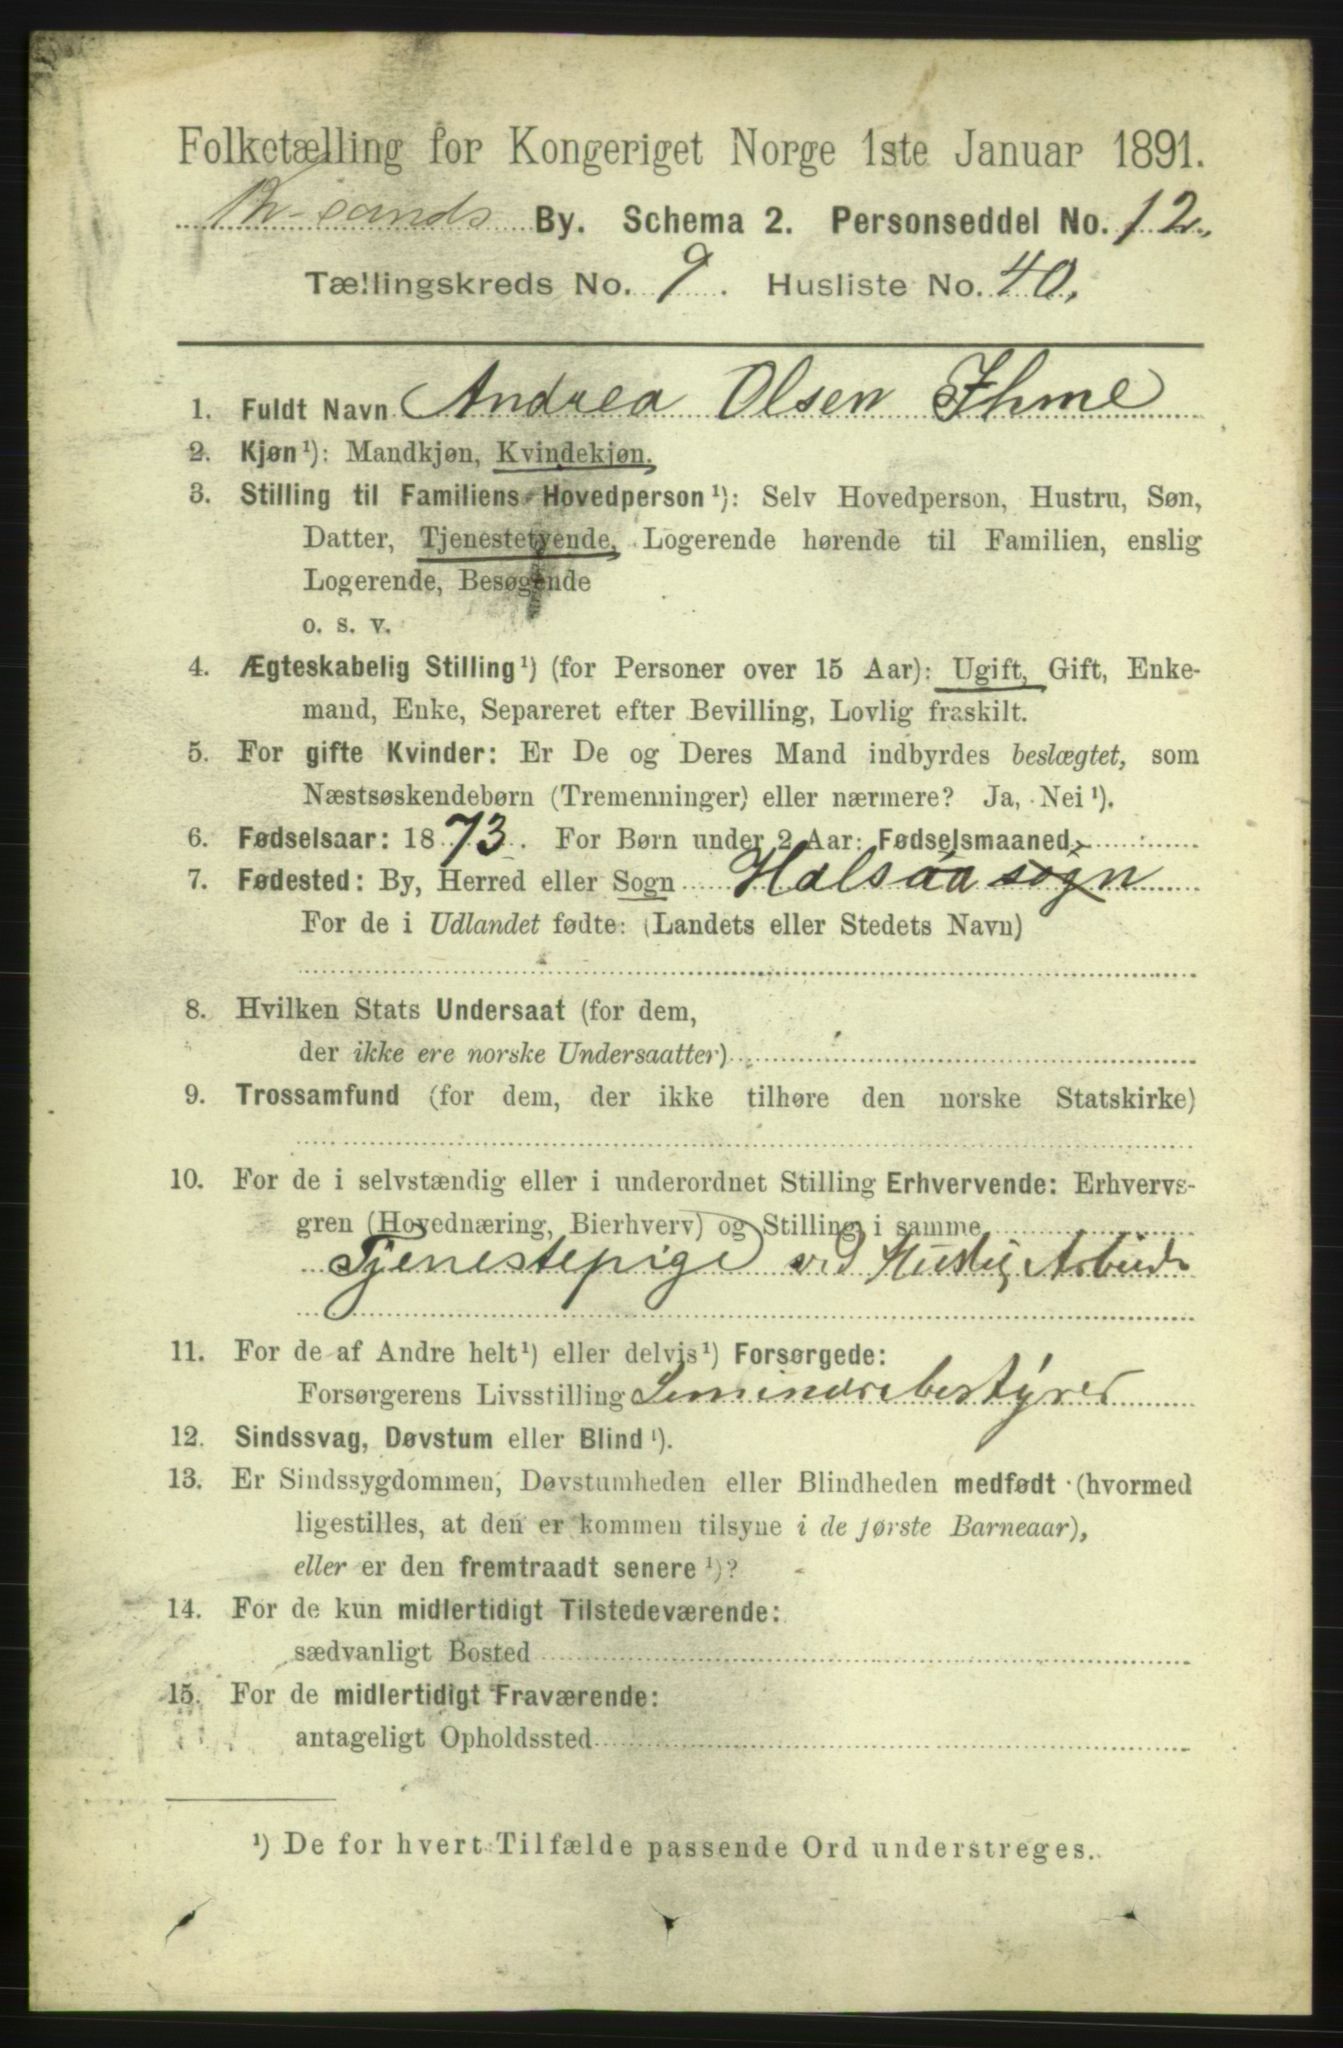 Folketælling for Kongeriget Norge 1ste Januar 1891.
Kr-sands By. Schema 2. Personseddel No. 12.
Tællingskreds No. 9. Husliste No. 40.
1. Fuldt Navn Andrea Olsen Ihme
2. Kjøn¹): Mandkjøn, Kvindekjøn.
3. Stilling til Familiens Hovedperson¹): Selv Hovedperson, Hustru, Søn,
Datter, Tjenestetyende, Logerende hørende til Familien, enslig
Logerende, Besøgende
o. s. v.
4. Ægteskabelig Stilling¹) (for Personer over 15 Aar): Ugift, Gift, Enke-
mand, Enke, Separeret efter Bevilling, Lovlig fraskilt.
5. For gifte Kvinder: Er De og Deres Mand indbyrdes beslægtet, som
Næstsøskendebørn (Tremenninger) eller nærmere? Ja, Nei¹).
6. Fødselsaar: 1873. For Børn under 2 Aar: Fødselsmaaned
7. Fødested: By, Herred eller Sogn Halsaa sogn
For de i Udlandet fødte: (Landets eller Stedets Navn)
8. Hvilken Stats Undersaat (for dem,
der ikke ere norske Undersaatter)
9. Trossamfund (for dem, der ikke tilhøre den norske Statskirke)
10. For de i selvstændig eller i underordnet Stilling Erhvervende: Erhvervs-
gren (Hovednæring, Bierhverv) og Stilling i samme
Tjenestepige ved Huslig Arbeide
11. For de af Andre helt¹) eller delvis¹) Forsørgede:
Forsørgerens Livsstilling
12. Sindssvag, Døvstum eller Blind¹).
13. Er Sindssygdommen, Døvstumheden eller Blindheden medfødt (hvormed
ligestilles, at den er kommen tilsyne i de første Barneaar),
eller er den fremtraadt senere¹)?
14. For de kun midlertidigt Tilstedeværende:
sædvanligt Bosted
15. For de midlertidigt Fraværende:
antageligt Opholdssted
¹) De for hvert Tilfælde passende Ord understreges.